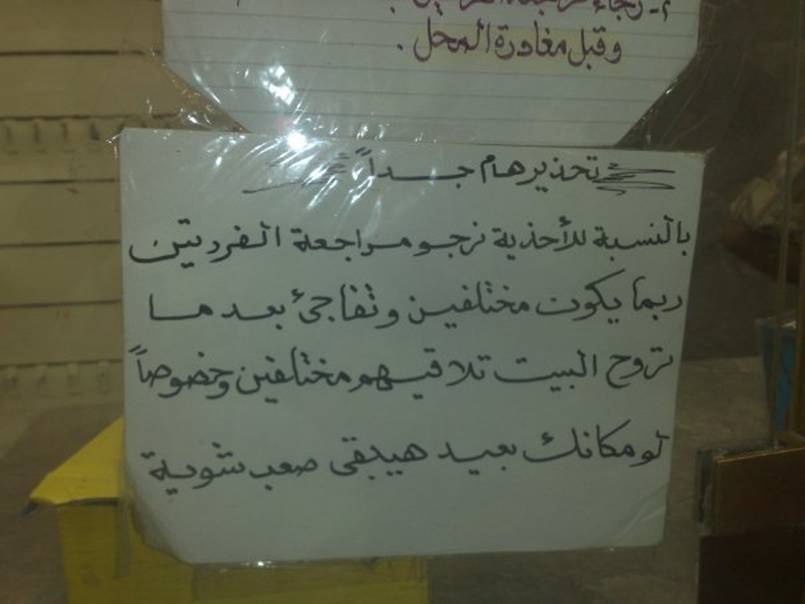 ٢- رجاء
وقبل مغادرة المحل .
تحذير هام جـداً
بالنسبة للأحذية نرجو مراجعة الفردتين
ربما يكون مختلفين وتفاجئ بعد ما
تروح البيت تلاقيهم مختلفين وخصوصاً
لو مكانك بعيد هيبقى صعب شوية